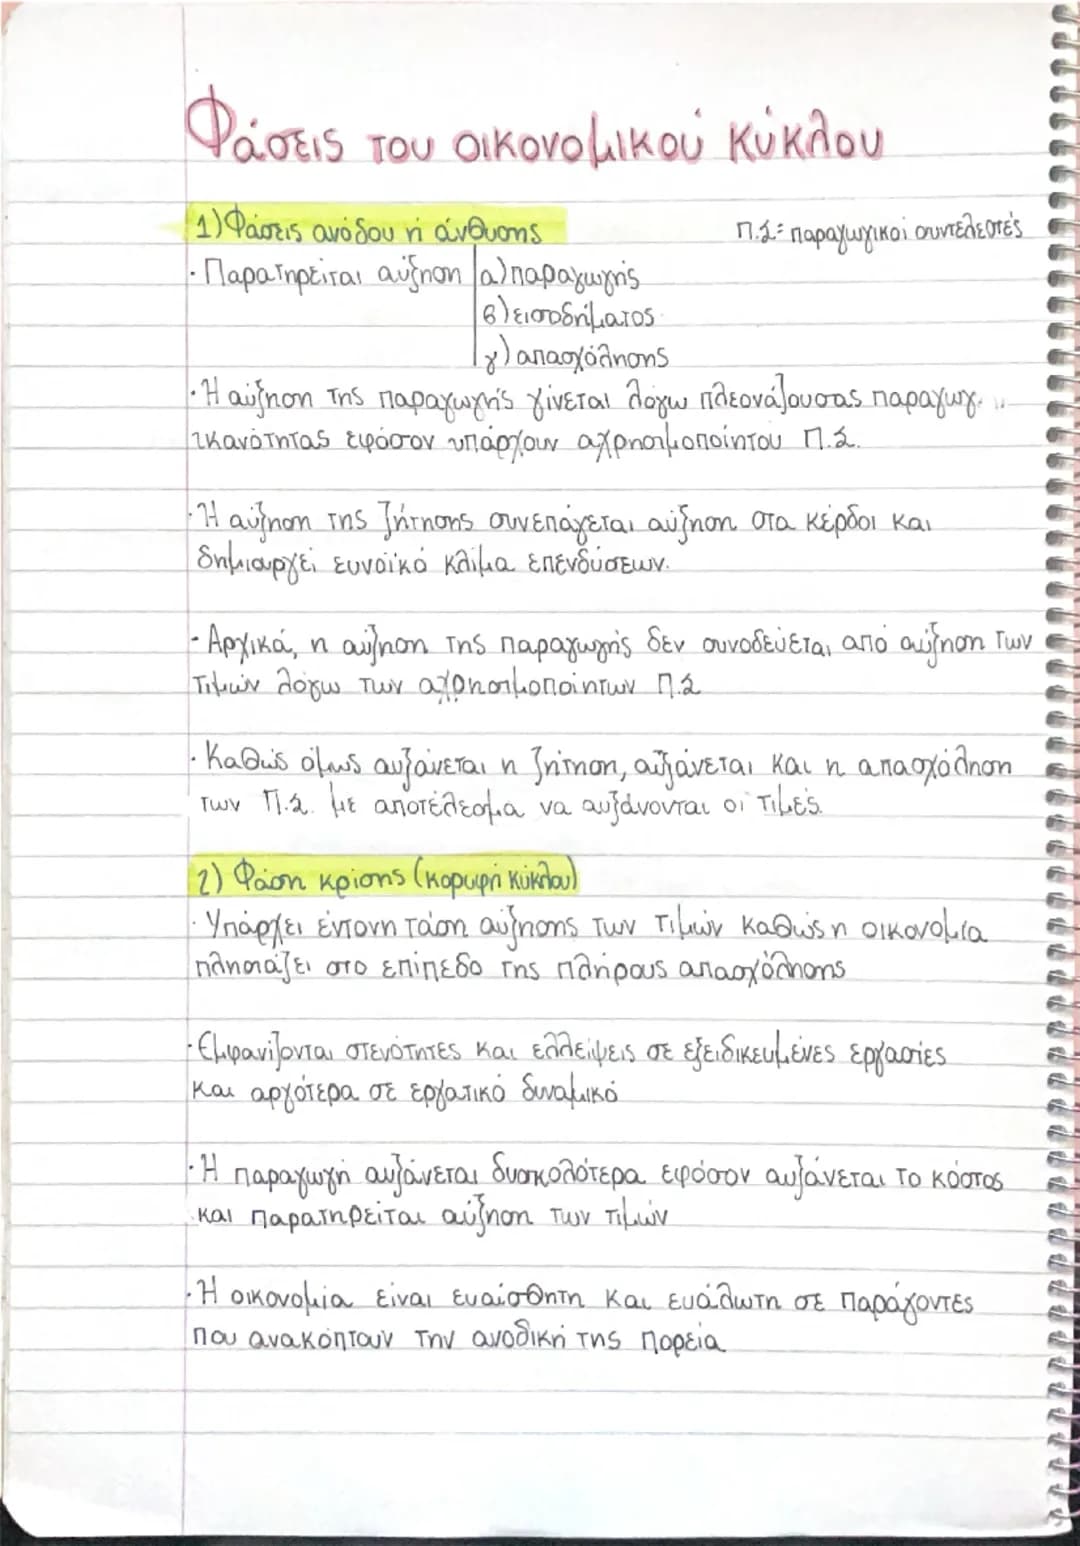 Φάσεις του οικονομικού κύκλου
1) Φάσεις ανόδου ή άνθυσης
Π.Σ= παραγωγικοί συντελεστές
· Παρατηρείται αύξηση α) παραγωγής
β) εισοδήματος
γ) απασχόλησης
· Η αύξηση της παραγωγής γίνεται λόγω πλεονάζουσας παραγωγ.
ικανότητας εφόσον υπάρχουν αχρησιμοποίητου Π.Σ.
· Η αύξηση της ζήτησης συνεπάγεται αύξηση στα κέρδοι και
δημιουργεί ευνοϊκό κλίμα επενδύσεων.
· Αρχικά, η αύξηση της παραγωγής δεν συνοδεύεται από αύξηση των
τιμών λόγω των αχρησιμοποίητων Π.Σ
· Καθώς όμως αυξάνεται η ζήτηση, αυξάνεται και η απασχόληση
των Π.Σ. με αποτέλεσμα να αυξάνονται οι τιμές.
2) Φάση κρίσης (κορυφή κύκλου)
· Υπάρχει έντονη τάση αύξησης των τιμών καθώς η οικονομία
πλησιάζει στο επίπεδο της πλήρους απασχόλησης
· Εμφανίζονται στενότητες και ελλείψεις σε εξειδικευμένες εργασίες
και αργότερα σε εργατικό δυναμικό
· Η παραγωγή αυξάνεται δυσκολότερα εφόσον αυξάνεται το κόστος
και παρατηρείται αύξηση των τιμών
· Η οικονομία είναι ευαίσθητη και ευάλωτη σε παράγοντες
που ανακόπτουν την ανοδική της πορεία